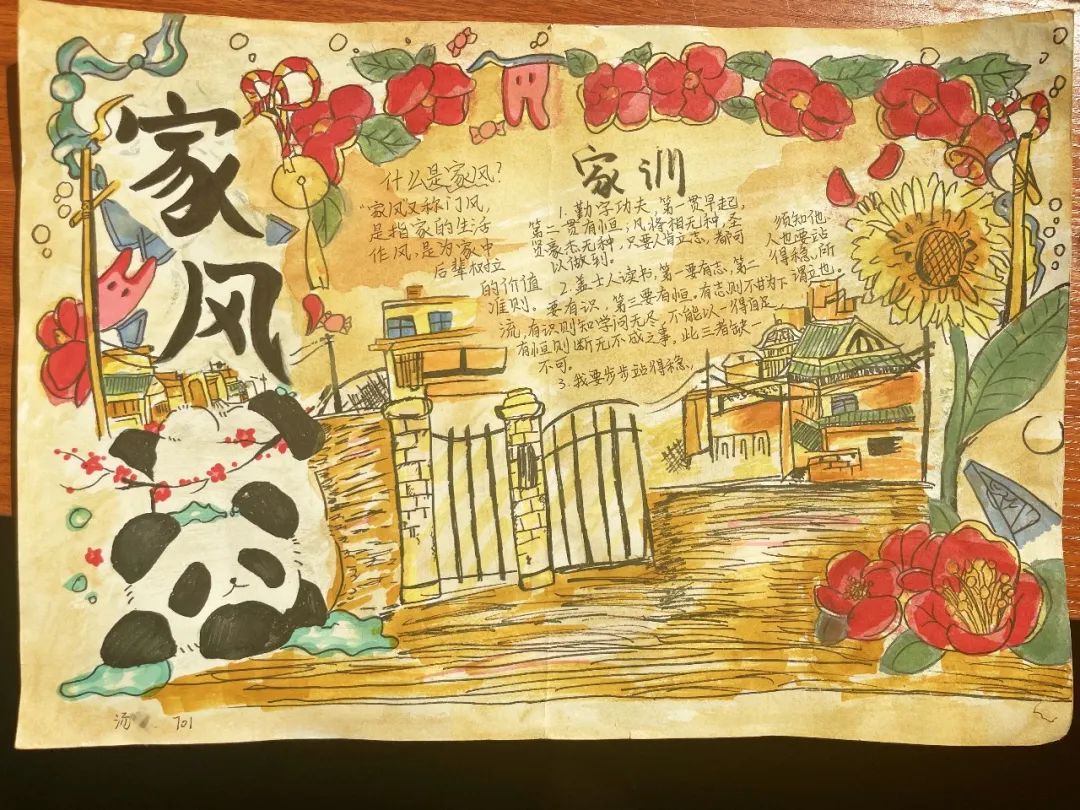 家风
什么是家风?
“家风又称门风,
是指家的生活
作风,是为家中
后辈树立
的价值
准则。
家训
1. 勤字功夫,第一贵早起,
第二贵有恒;凡将相无种,圣
贤豪杰无种,只要人肯立志,都可
以做到。
2. 盖士人读书,第一要有志,第二
要有识,第三要有恒。有志则不甘为下
流,有识则知学问无尽,不能以一得自足,
有恒则断无不成之事,此三者缺一
不可。
3. 我要步步站得稳,
须知他
人也要站
得稳,所
谓立也。
汤 701